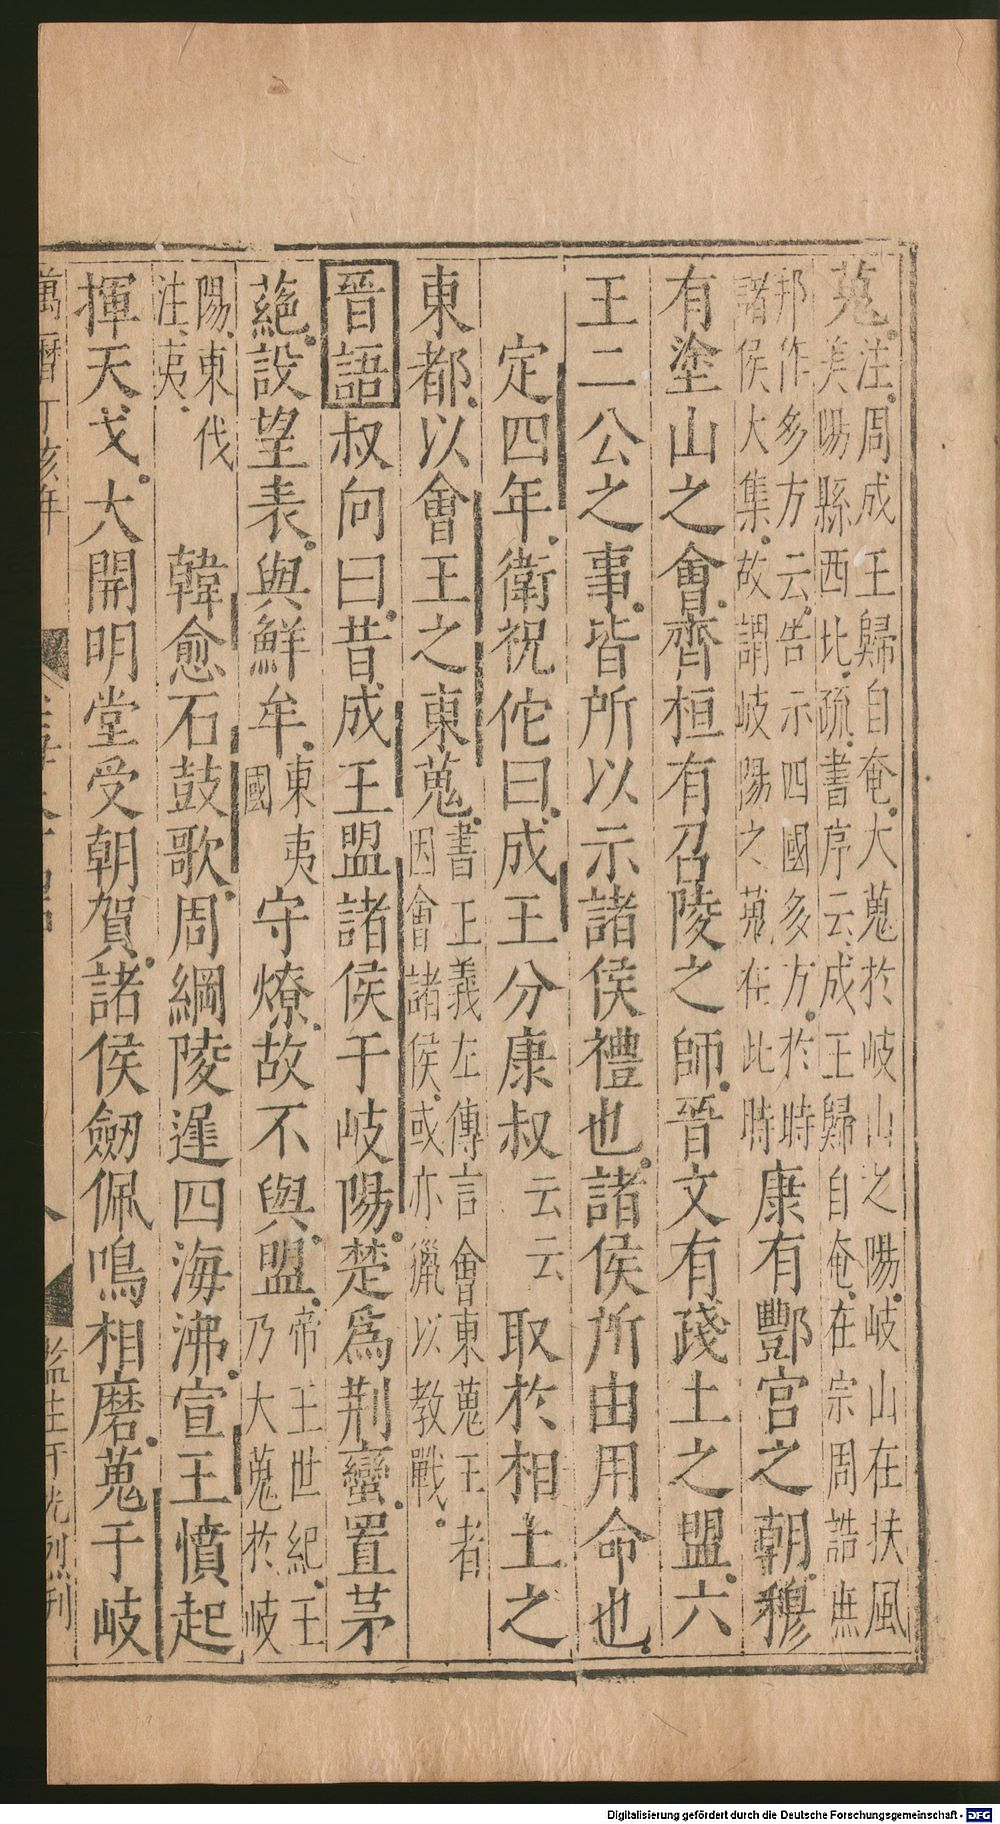 蒐。注。周成王歸自奄。大蒐於岐山之陽。岐山在扶風
美陽縣西北。疏。書序云。成王歸自奄。在宗周誥庶
邦作多方云。告示四國多方。於時
諸侯大集。故謂岐陽之蒐在此時康有酆宮之朝。穆
有塗山之會。齊桓有召陵之師。晉文有踐土之盟。六
王二公之事。皆所以示諸侯禮也。諸侯所由用命也。
定四年。衛祝佗曰。成王分康叔云云取於相土之
東都。以會王之東蒐。書正義左傳言會東蒐王者
因會諸侯。或亦獵以教戰。
晉語叔向曰。昔成王盟諸侯于岐陽。楚爲荆蠻。置茅
蕝。設望表。與鮮牟。東夷
國守燎。故不與盟。帝王世紀。王
乃大蒐於岐
陽。東伐
注。夷。韓愈石鼓歌。周綱陵遲四海沸。宣王憤起
揮天戈。大開明堂受朝賀。諸侯劒佩鳴相磨。蒐于岐
萬曆丁亥年
監生于光烈刊
Digitalisierung gefördert durch die Deutsche Forschungsgemeinschaft - DFG